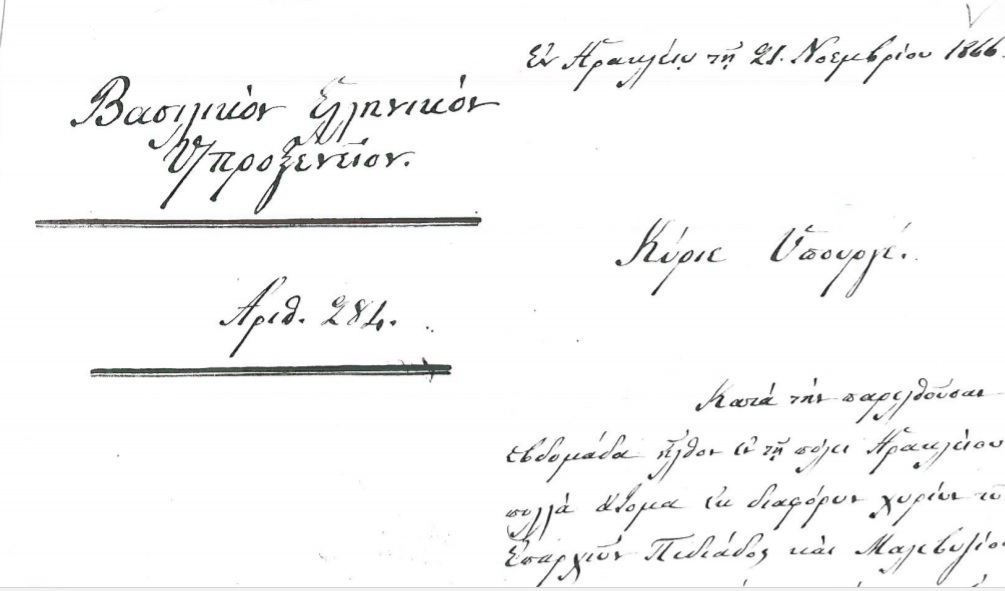 Ἐν Ἡρακλείῳ τῇ 21. Νοεμβρίου 1866.
Βασιλικὸν Ἑλληνικὸν
Ὑπροξενεῖον.
Ἀριθ. 284.
Κύριε Ὑπουργέ.
Κατά τήν παρελθοῦσαν
ἑβδομάδα ἦλθον ἐν τῇ πόλει Ἡρακλείου
πολλά ἄτομα ἐκ διαφόρων χωρίων τῶν
Ἐπαρχιῶν Πεδιάδος καί Μαλεβυζίου